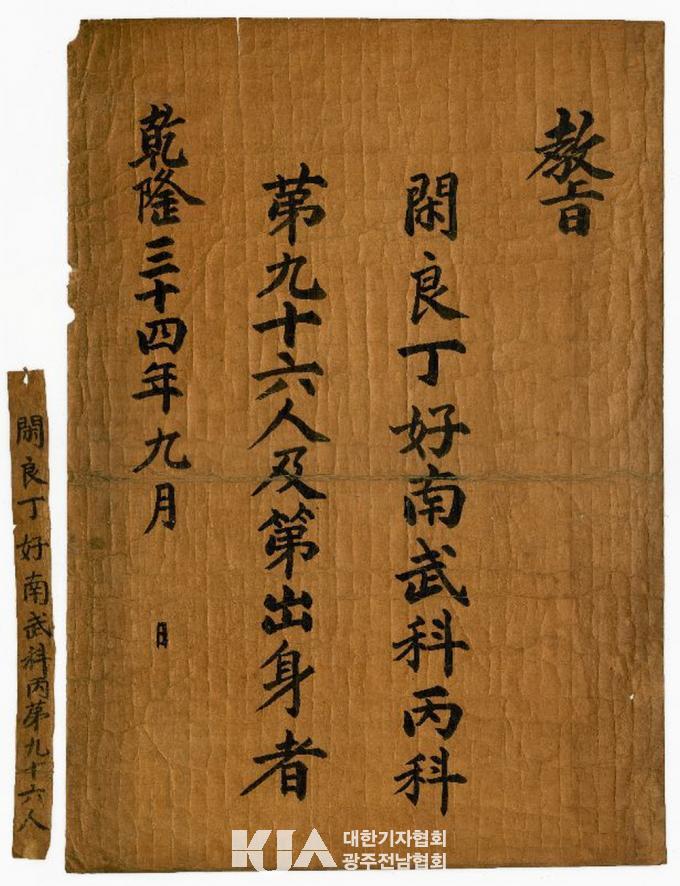 敎旨
閑良丁好南武科丙科
苐九十六人及第出身者
乾隆三十四年九月 日
閑良丁好南武科丙苐九十六人
KJA 대한기자협회
광주전남협회